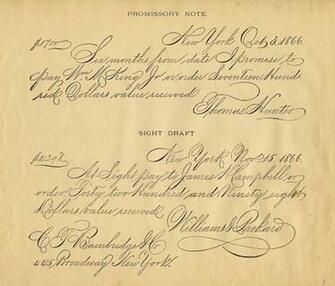 PROMISSORY NOTE
$1700 New York Oct 3, 1866.
Six months from date I promise to
pay Wm. M. King Jr. or order Seventeen Hund
red Dollars value received
Thomas Hunter
SIGHT DRAFT
New York Nov. 15 1866.
At Sight pay to James W. Campbell or
order Forty two Hundred and Ninety eight
Dollars value received
Williams & Packard
C. T. Bainbridge & Co
445 Broadway New York.